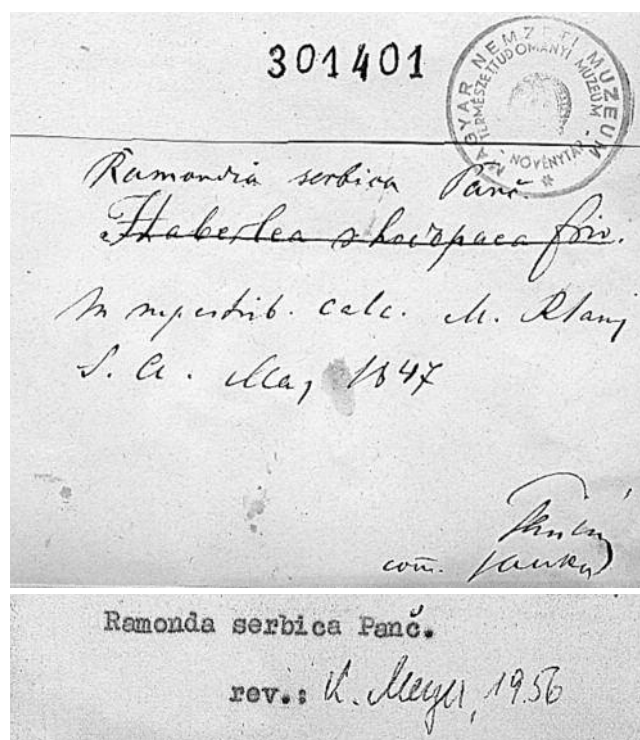 301401
MAGYAR NEMZETI MUZEUM
TERMÉSZETTUDOMÁNYI MUZEUM
NÖVÉNYTÁR
Ramondia serbica Panč.
Haberlea rhodopaea friv.
In rupestrib. calc. M. Rtanj
S. A. May 1847
com. Janka
Ramonda serbica Panč.
rev.: K. Meyer, 1956